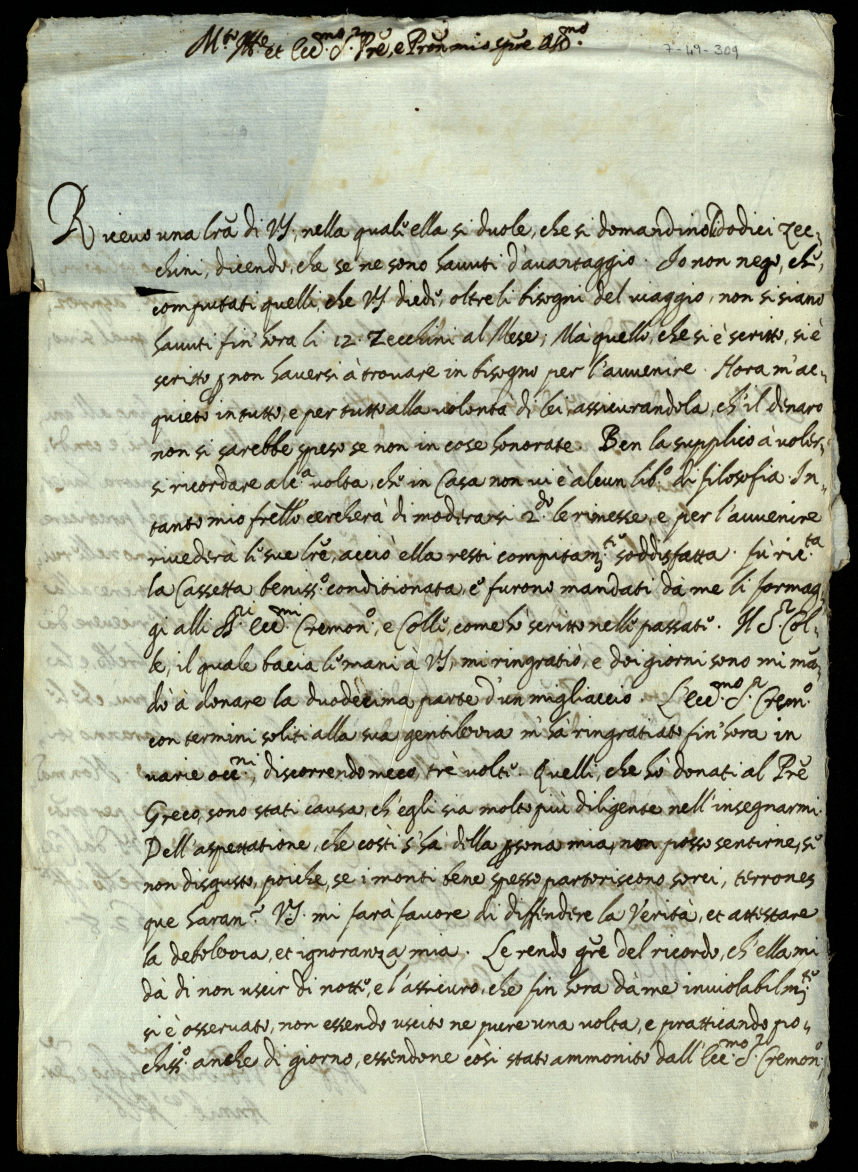 M.to Ill.re et Ecc.mo S.r P're, e Pro'n mio sp're oss.mo
7-49-309
Ricevo una l'ra di VS, nella quale ella si duole, che si domandino i dodici zec-
chini, dicendo, che se ne sono havuti d'avantaggio. Io non nego, che,
computati quelli, che VS diede, oltre li bisogni del viaggio, non si siano
havuti fin'hora li 12. Zecchini al Mese; Mà quello, che si è scritto, si è
scritto p non haversi à trovare in bisogno per l'avvenire. Hora m'ac-
quieto in tutto, e per tutto alla volontà di lei, assicurandola, ch'il denaro
non si sarebbe speso se non in cose honorate. Ben la supplico à voler-
si ricordare alc.a volta, che in Casa non vi è alcun lib.o di filosofia. In-
tanto mio fr'ello cercherà di moderarsi 2.do le rimesse, e per l'avvenire
rivederà le sue l're, acciò ella resti compitam.te soddisfatta. Fù ric.ta
la Cassetta beniss.o conditionata, e furono mandati dà me li formag-
gi alli SS.ri Ecc.mi Cremon.o, e Colle, come hò scritto nelle passate. Il S.r Col-
le, il quale bacia le mani à VS, mi ringratiò, e doi giorni sono mi ma'-
dò à donare la duodecima parte d'un migliaccio. L'Ecc.mo S.r Crem.o
con termini soliti alla sua gentilezza m'hà ringratiato fin'hora in
varie occ.ni, discorrendo meco trè volte. Quelli, che hò donati al P're
Greco, sono stati causa, ch'egli sia molto più diligente nell'insegnarmi.
Dell'aspettatione, che costì s'hà della p'sona mia, non posso sentirne, se
non disgusto, poiche, se i monti bene spesso partoriscono sorci, terrones
que haran.o VS. mi farà favore di diffendere la Verità, et attestare
la debolezza, et ignoranza mia. Le rendo gr'e del ricordo, ch'ella mi
dà di non uscir di notte, e l'assicuro, che fin hora dà me inviolabilm.te
si è osservato, non essendo uscito ne pure una volta, e pratticando po-
chiss.o anche di giorno, essendone così stato ammonito dall'Ecc.mo S.r Cremon.o,